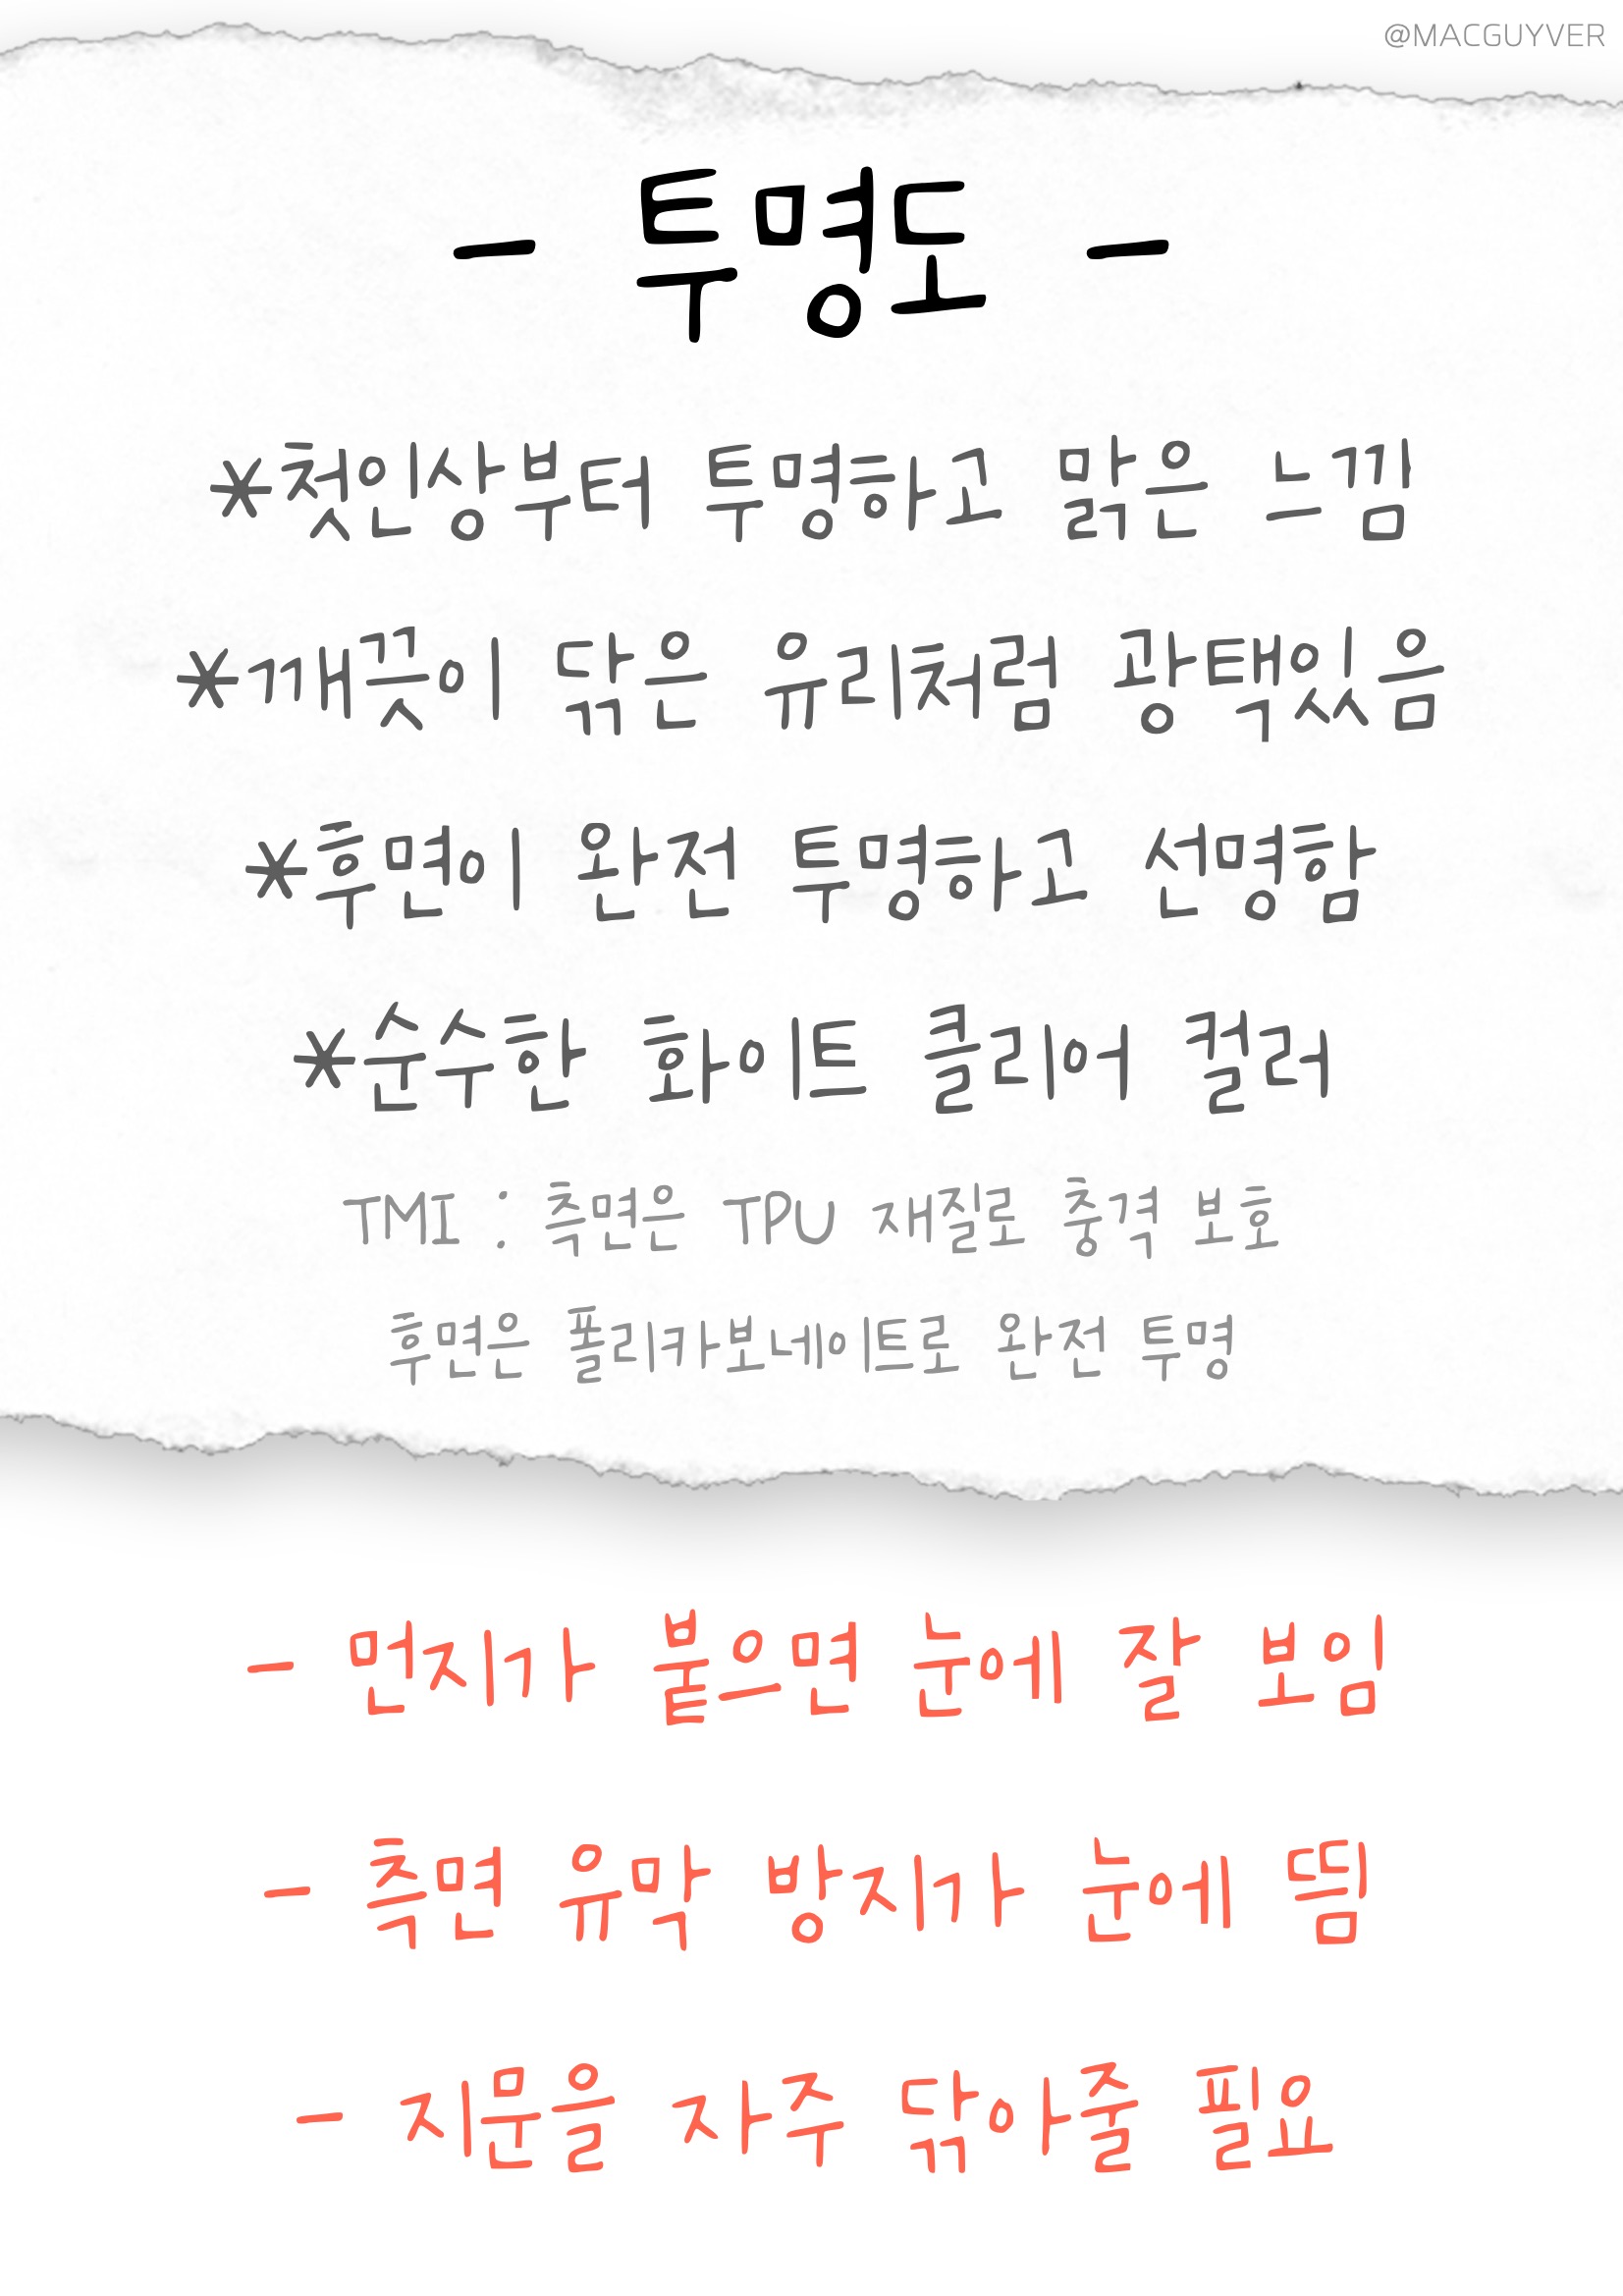 @MACGUYVER
- 투명도 -
*첫인상부터 투명하고 맑은 느낌
*깨끗이 닦은 유리처럼 광택있음
*후면이 완전 투명하고 선명함
*순수한 화이트 클리어 컬러
TMI : 측면은 TPU 재질로 충격 보호
후면은 폴리카보네이트로 완전 투명
- 먼지가 붙으면 눈에 잘 보임
- 측면 유막 방지가 눈에 띔
- 지문을 자주 닦아줄 필요